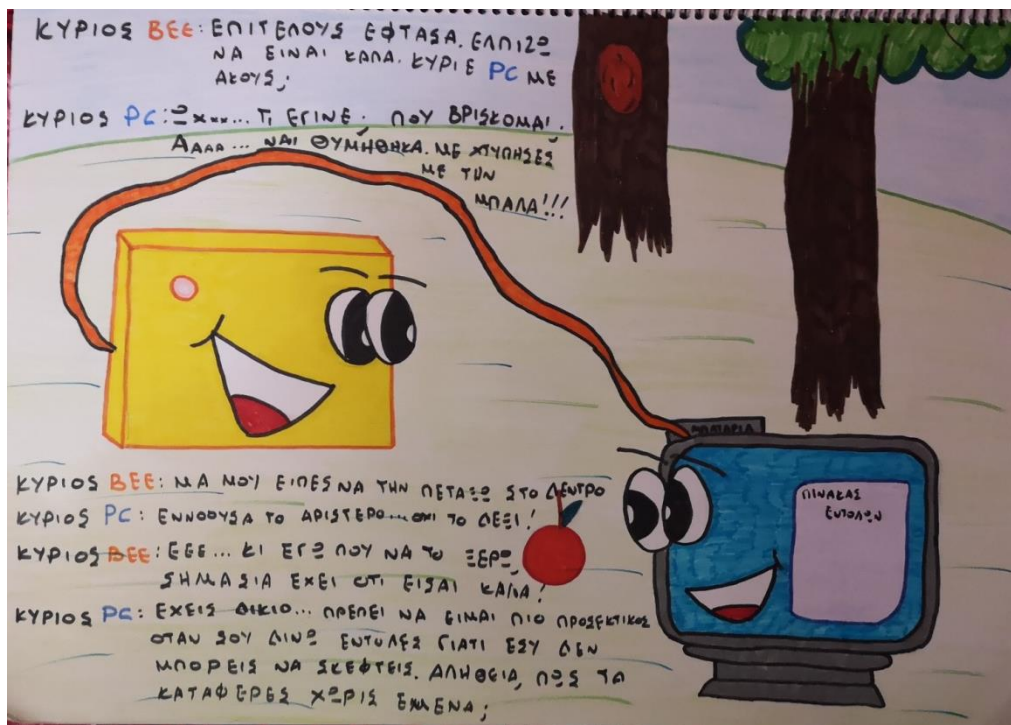 ΚΥΡΙΟΣ BEE: ΕΠΙΤΕΛΟΥΣ ΕΦΤΑΣΑ. ΕΛΠΙΖΩ
ΝΑ ΕΙΝΑΙ ΚΑΛΑ. ΚΥΡΙΕ PC ΜΕ
ΑΚΟΥΣ;
ΚΥΡΙΟΣ PC: ΩΧ... ΤΙ ΕΓΙΝΕ; ΠΟΥ ΒΡΙΣΚΟΜΑΙ;
ΑΑΑΑ... ΝΑΙ ΘΥΜΗΘΗΚΑ. ΜΕ ΧΤΥΠΗΣΕΣ
ΜΕ ΤΗΝ
ΜΠΑΛΑ!!!
ΜΠΑΤΑΡΙΑ
ΠΙΝΑΚΑΣ
ΕΝΤΟΛΩΝ
ΚΥΡΙΟΣ BEE: ΜΑ ΜΟΥ ΕΙΠΕΣ ΝΑ ΤΗΝ ΠΕΤΑΞΩ ΣΤΟ ΔΕΝΤΡΟ
ΚΥΡΙΟΣ PC: ΕΝΝΟΟΥΣΑ ΤΟ ΑΡΙΣΤΕΡΟ...ΟΧΙ ΤΟ ΔΕΞΙ!
ΚΥΡΙΟΣ BEE: ΕΕΕ... ΚΙ ΕΓΩ ΠΟΥ ΝΑ ΤΟ ΞΕΡΩ;
ΣΗΜΑΣΙΑ ΕΧΕΙ ΟΤΙ ΕΙΣΑΙ ΚΑΛΑ!
ΚΥΡΙΟΣ PC: ΕΧΕΙΣ ΔΙΚΙΟ... ΠΡΕΠΕΙ ΝΑ ΕΙΜΑΙ ΠΙΟ ΠΡΟΣΕΚΤΙΚΟΣ
ΟΤΑΝ ΣΟΥ ΔΙΝΩ ΕΝΤΟΛΕΣ ΓΙΑΤΙ ΕΣΥ ΔΕΝ
ΜΠΟΡΕΙΣ ΝΑ ΣΚΕΦΤΕΙΣ. ΑΛΗΘΕΙΑ, ΠΩΣ ΤΑ
ΚΑΤΑΦΕΡΕΣ ΧΩΡΙΣ ΕΜΕΝΑ;